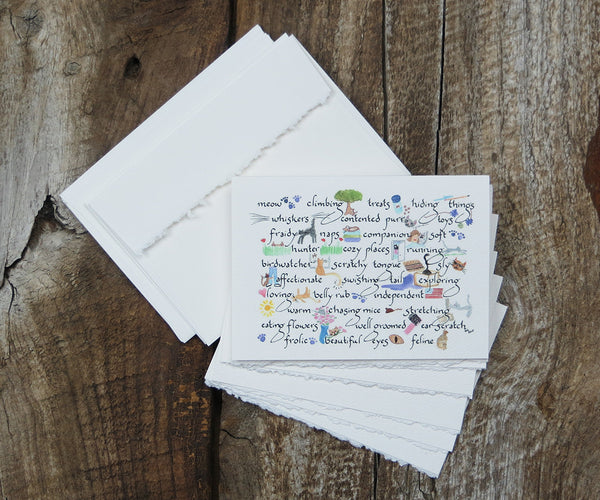 meow climbing treats hiding things
whiskers contented purr toys
fraidy naps companion soft
hunter cozy places running
birdwatcher scratchy tongue sly
affectionate swishing tail exploring
loving belly rub independent
warm chasing mice stretching
eating flowers well groomed ear scratch
frolic beautiful eyes feline